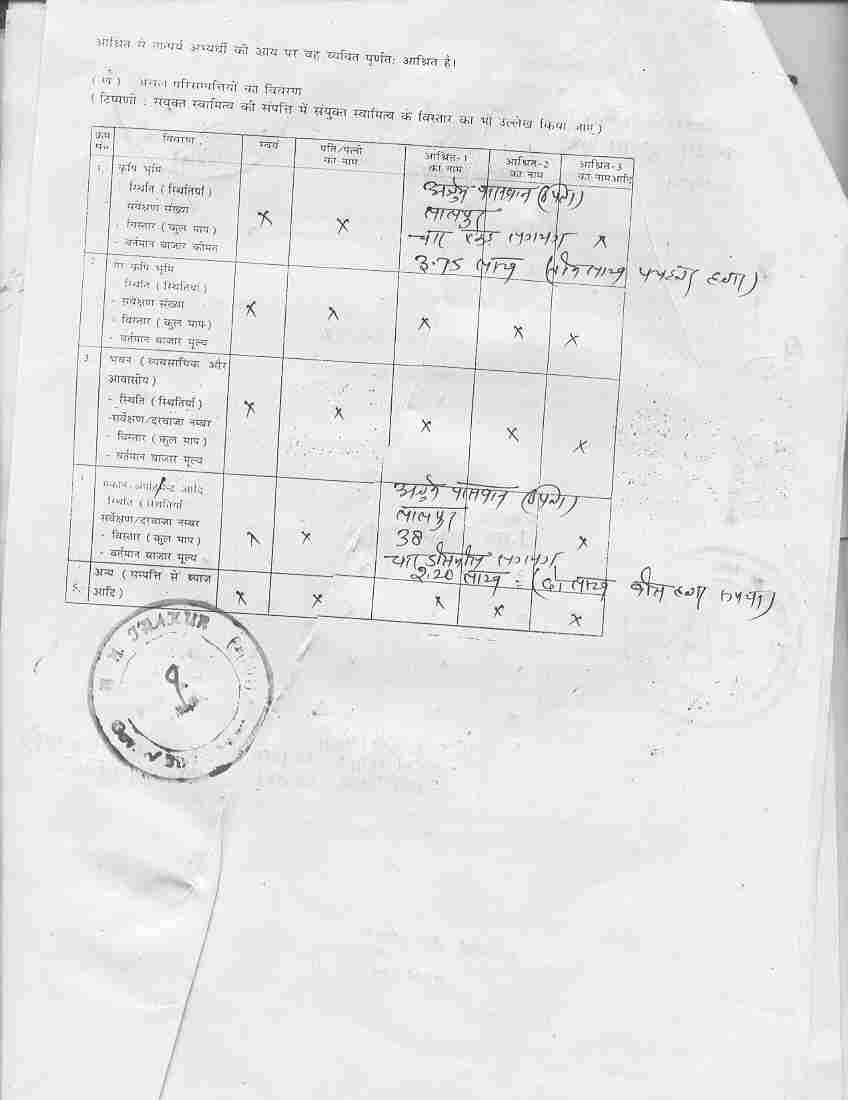 आश्रित से तात्पर्य अभ्यर्थी की आय पर वह व्यक्ति पूर्णतः आश्रित है।
(ख) अचल परिसम्पत्तियों का विवरण
(टिप्पणी : संयुक्त स्वामित्व की संपत्ति में संयुक्त स्वामित्व के विस्तार का भी उल्लेख किया जाए)
क्रम सं० विवरण स्वयं पति/पत्नी का नाम आश्रित-1 का नाम आश्रित-2 का नाम आश्रित-3 का नाम आदि
1. कृषि भूमि
स्थिति (स्थितियाँ)
सर्वेक्षण संख्या
विस्तार (कुल माप)
वर्तमान बाजार कीमत
x x
पासवान (पिता)
लालपुर
चार एकड़ लगभग x
3.75 लाख (तीन लाख पचहत्तर हजार)
2 गैर कृषि भूमि
स्थिति (स्थितियाँ)
- सर्वेक्षण संख्या
- विस्तार (कुल माप)
- वर्तमान बाजार मूल्य
x x x x x
3 भवन (व्यवसायिक और
आवासीय)
- स्थिति (स्थितियाँ)
-सर्वेक्षण/दरवाजा नम्बर
- विस्तार (कुल माप)
- वर्तमान बाजार मूल्य
x x x x x
मकान/अपार्टमेंट आदि
स्थिति (स्थितियाँ
सर्वेक्षण/दरवाजा नम्बर
- विस्तार (कुल माप)
- वर्तमान बाजार मूल्य
x x
पासवान (पिता)
लालपुर
38
चार डिसमील लगभग x
2.20 लाख : (दो लाख बीस हजार रुपया)
5. अन्य (सम्पत्ति से ब्याज
आदि)
x x x x x
THAKUR